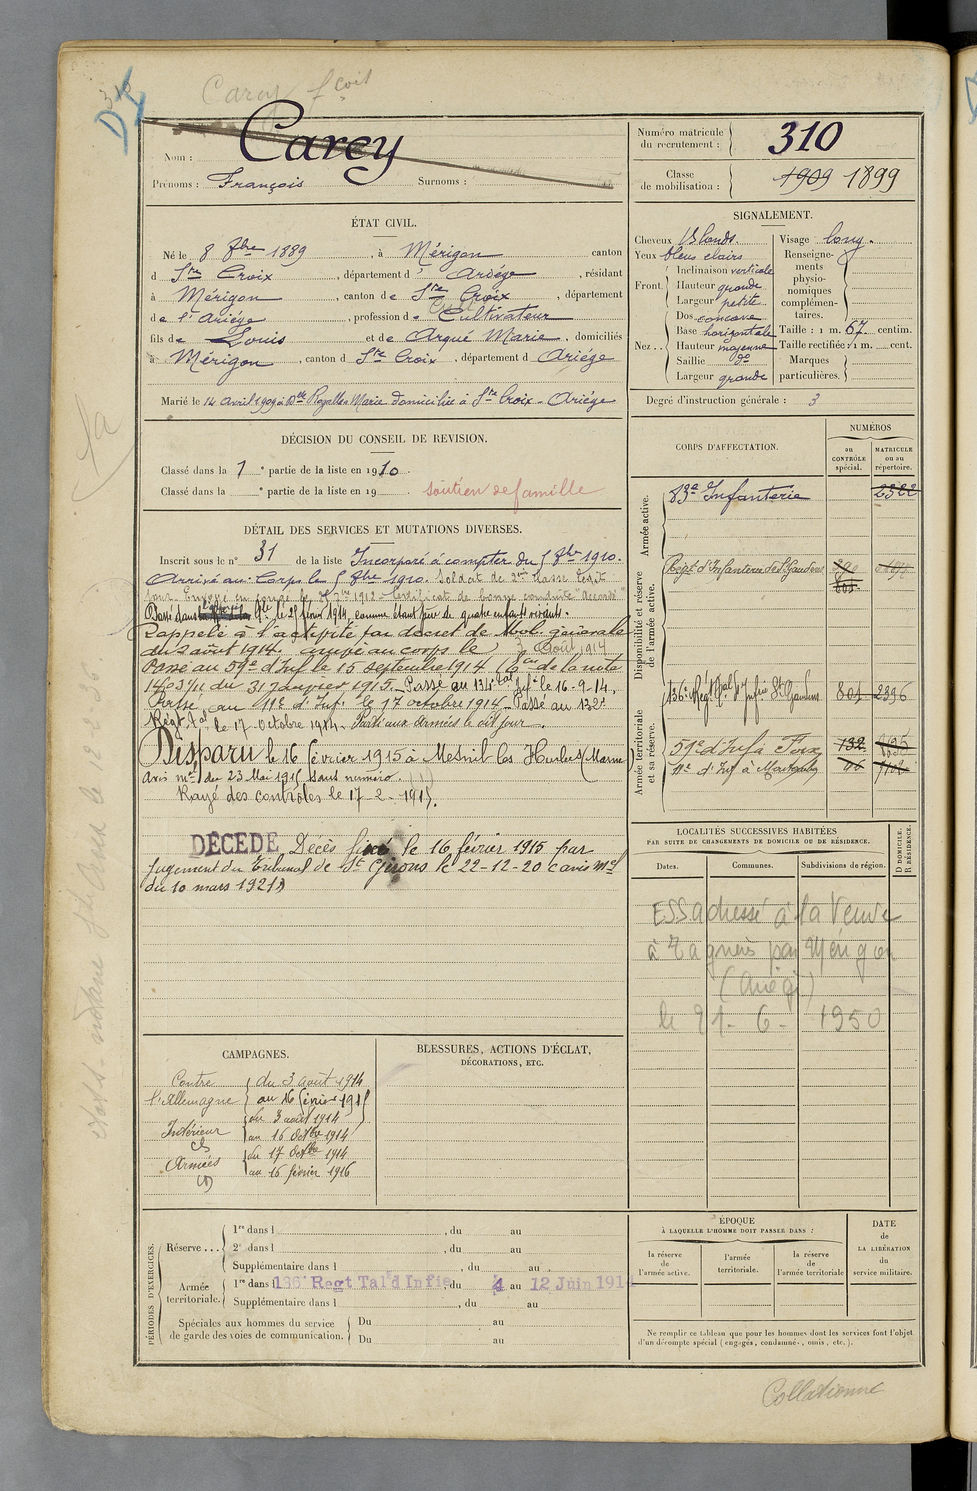 Carcy fçois
Nom : Carcy
Prénoms : François Surnoms :
Numéro matricule du recrutement : 310
Classe de mobilisation : 1909 1899
ÉTAT CIVIL.
Né le 8 9bre 1889, à Mérigon canton
d Ste Croix, département d' Ariège, résidant
à Mérigon, canton de Ste Croix, département
de l'Ariège, profession de Cultivateur
fils de Louis et de Argué Marie, domiciliés
à Mérigon, canton d Ste Croix, département d Ariège
Marié le 14 avril 1909 à Dlle Marie domiciliée à Ste Croix - Ariège
SIGNALEMENT.
Cheveux blonds. Visage long.
Yeux bleus clairs
Front. Inclinaison verticale
Hauteur grande
Largeur petite
Nez.. Dos concave
Base horizontale
Hauteur moyenne
Saillie do
Largeur grande
Renseignements physionomiques complémentaires.
Taille : 1 m. 67 centim.
Taille rectifiée : 1 m. cent.
Marques particulières.
Degré d'instruction générale : 3
DÉCISION DU CONSEIL DE REVISION.
Classé dans la 1e partie de la liste en 1910.
Classé dans la e partie de la liste en 19 .
soutien de famille
DÉTAIL DES SERVICES ET MUTATIONS DIVERSES.
Inscrit sous le n° 31 de la liste Incorporé à compter du 5 8bre 1910.
Arrivé au Corps le 5 8bre 1910. Soldat de 2me classe
Envoyé en congé le 1912 Certificat de bonne conduite "Accordé"
Passé dans le 21 février 1914, comme étant père de quatre enfants vivants.
Rappelé à l'activité par décret de Mob. générale
du 2 août 1914. arrivé au corps le 3 Août 1914
Passé au 59e d'Inf le 15 septembre 1914 de la note
du 31 janvier 1915. Passé au 134 tal Inf le 16-9-14,
Passé au 11e d'Inf. le 17 octobre 1914 - Passé au 132e
Régt tal le 17 Octobre 1914. Parti aux armées le dit jour.
Disparu le 16 février 1915 à Mesnil les Hurlus (Marne)
Avis mel du 23 Mai 1915 Sans numéro.
Rayé des contrôles le 17-2-1915.
DÉCÉDÉ Décès fixé le 16 février 1915 par
Jugement du Tribunal de St Girons le 22-12-20 (avis Mel
du 10 mars 1921)
CORPS D'AFFECTATION.
NUMÉROS
au CONTRÔLE spécial.
MATRICULE ou au répertoire.
Armée active.
83e Infanterie 2322
Disponibilité et réserve de l'armée active.
Régt d'Infanterie de St Gaudens
801
136e Régt tal d'Infie St Gaudens 801 2396
Armée territoriale et sa réserve.
59e d'Inf à Foix 132
11e d'Inf à Montauban 46
LOCALITÉS SUCCESSIVES HABITÉES
PAR SUITE DE CHANGEMENTS DE DOMICILE OU DE RÉSIDENCE.
Dates. Communes. Subdivisions de région. D DOMICILE. R RÉSIDENCE.
ESS adressé à la Veuve
à par Mérigon
(Ariège)
le 21-6-1950
CAMPAGNES.
Contre l'Allemagne
du 3 août 1914
au 16 février 1915
Intérieur
du 3 août 1914
au 16 Octbre 1914
Armées
du 17 Octbre 1914
au 16 février 1916
BLESSURES, ACTIONS D'ÉCLAT,
DÉCORATIONS, ETC.
PÉRIODES D'EXERCICES.
Réserve... 1re dans l , du au
2e dans l , du au
Supplémentaire dans l , du au
Armée territoriale. 1re dans l 136e Regt Tal d'Infie, du 4 au 12 Juin 1914
Supplémentaire dans l , du au
Spéciales aux hommes du service de garde des voies de communication. Du au
Du au
ÉPOQUE
À LAQUELLE L'HOMME DOIT PASSER DANS :
la réserve de l'armée active.
l'armée territoriale.
la réserve de l'armée territoriale
DATE de LA LIBÉRATION du service militaire.
Ne remplir ce tableau que pour les hommes dont les services font l'objet
d'un décompte spécial (engagés, condamnés, omis, etc.).
Collationné